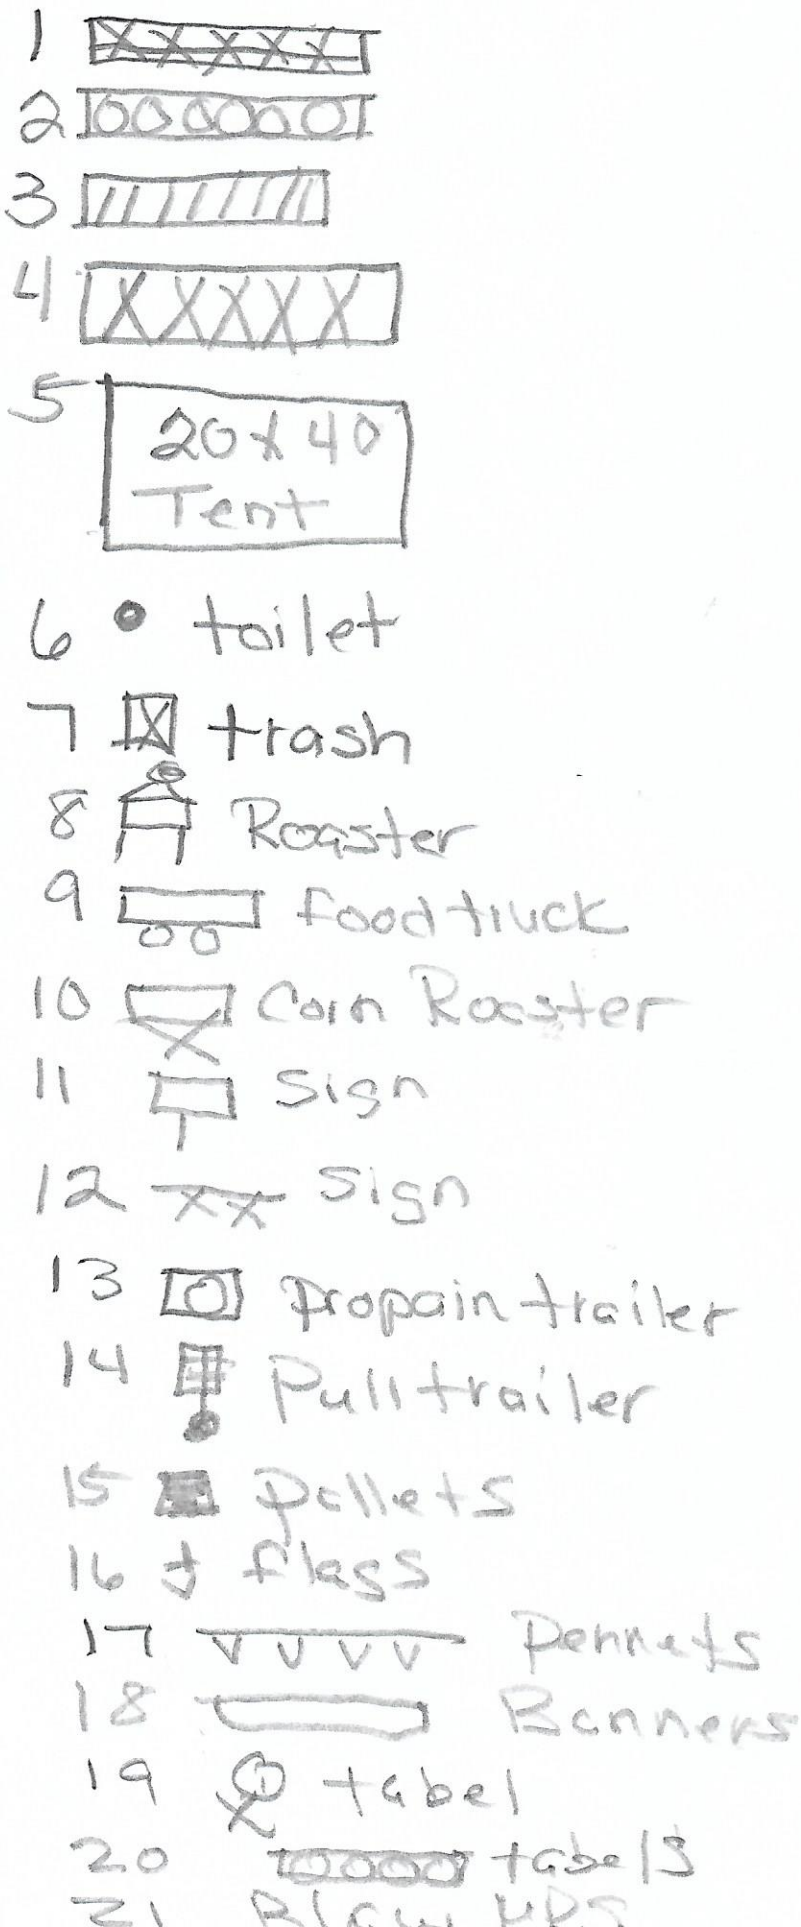 1
2
3
4
5 20 x 40
Tent
6 toilet
7 trash
8 Roaster
9 food truck
10 Corn Roaster
11 Sign
12 Sign
13 propain trailer
14 Pull trailer
15 pallets
16 flags
17 Pennets
18 Banners
19 tabel
20 tabels
21 Blow ups